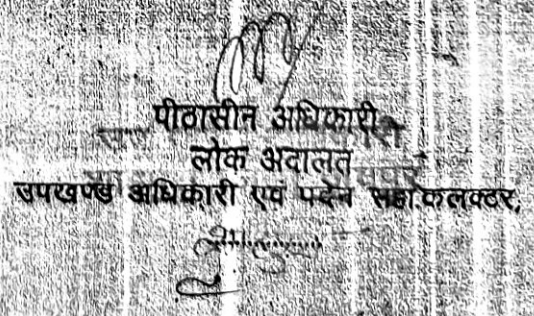 पीठासीन अधिकारी
लोक अदालत
उपखण्ड अधिकारी एवं पदेन सहा.कलक्टर,